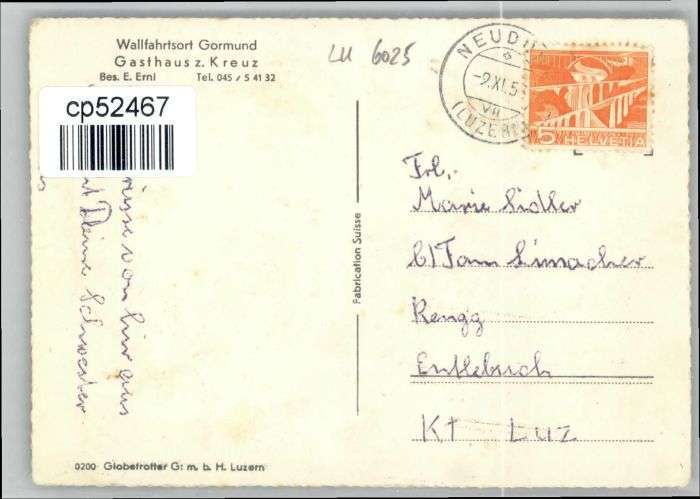 Wallfahrtsort Gormund
Gasthaus z. Kreuz
Bes. E. Erni Tel. 045 / 5 41 32
LU 6025
cp52467
von hier aus
Deine Schwester
Fabrication Suisse
0200 Globetrotter G. m. b. H. Luzern
NEUD
-9.XI.5
VII
(LUZERN)
5 HELVETIA
Frl.
Marie Sidler
Rengg
Entlebuch
Kt Luz